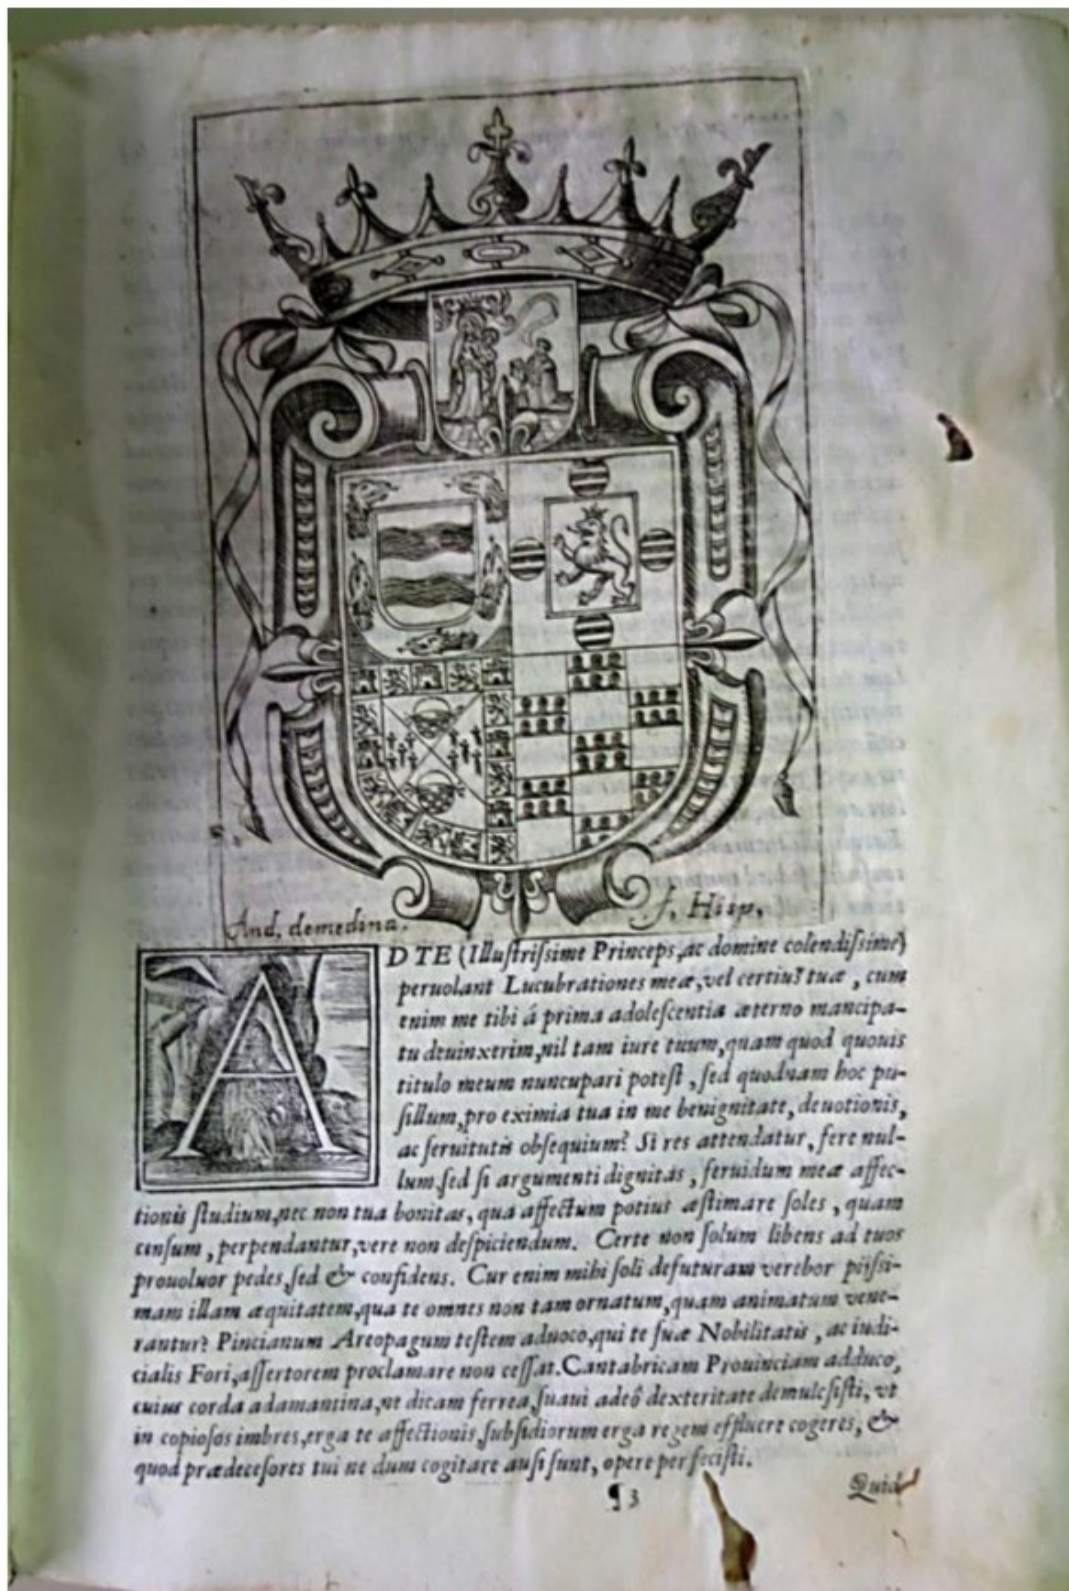 And, demedina.
f, Hisp,
AD TE (Illustrissime Princeps, ac domine colendissime)
peruolant Lucubrationes meæ, vel certius tuæ, cum
enim me tibi á prima adolescentia æterno mancipa-
tu deuinxerim, nil tam iure tuum, quam quod quouis
titulo meum nuncupari potest, sed quodnam hoc pu-
sillum, pro eximia tua in me benignitate, deuotionis,
ac seruitutis obsequium? Si res attendatur, fere nul-
lum, sed si argumenti dignitas, feruidum meæ affec-
tionis studium, nec non tua bonitas, qua affectum potius æstimare soles, quam
censum, perpendantur, vere non despiciendum. Certe non solùm libens ad tuos
prouoluor pedes, sed & confidens. Cur enim mihi soli defuturam verebor piissi-
mam illam æquitatem, qua te omnes non tam ornatum, quam animatum vene-
rantur? Pincianum Areopagum testem aduoco, qui te suæ Nobilitatis, ac iudi-
cialis Fori, assertorem proclamare non cessat. Cantabricam Prouinciam adduco,
cuius corda adamantina, ne dicam ferrea, suaui adeô dexteritate demulcsisti, vt
in copiosos imbres, erga te affectionis, subsidiorum erga regem effluere cogeres, &
quod prædecesores tui ne dum cogitare ausi sunt, opere perfecisti.
¶ 3
Quid